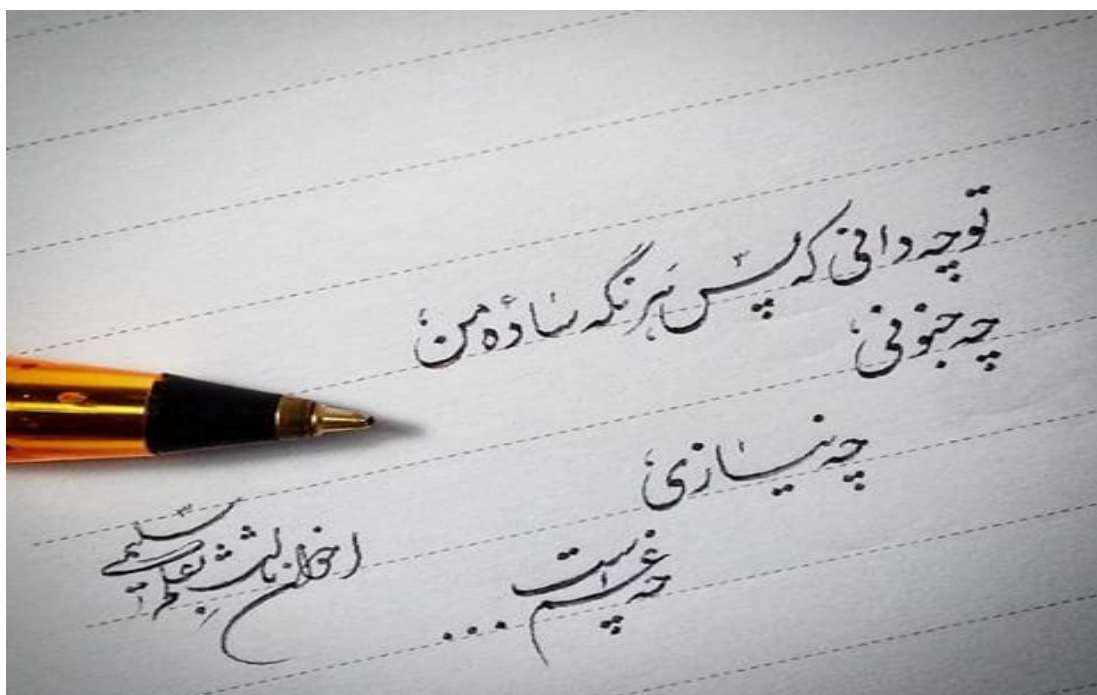 تو چه دانی که پس هر نگه ساده من،
چه جنونی،
چه نیازی،
چه غم است...
اخوان ثالث